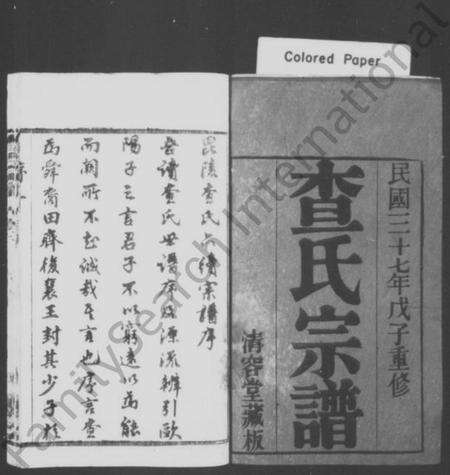 Colored Paper
民國三十七年戊子重修
查氏宗譜
清容堂藏板
毘陵查氏六續宗譜序
余讀查氏世譜序及源流辨引歐
陽子之言君子不以窮遠以為能
而闕所不知誠哉是言也序言查
為舜裔田齊後襄王封其少子於
FamilySearch International